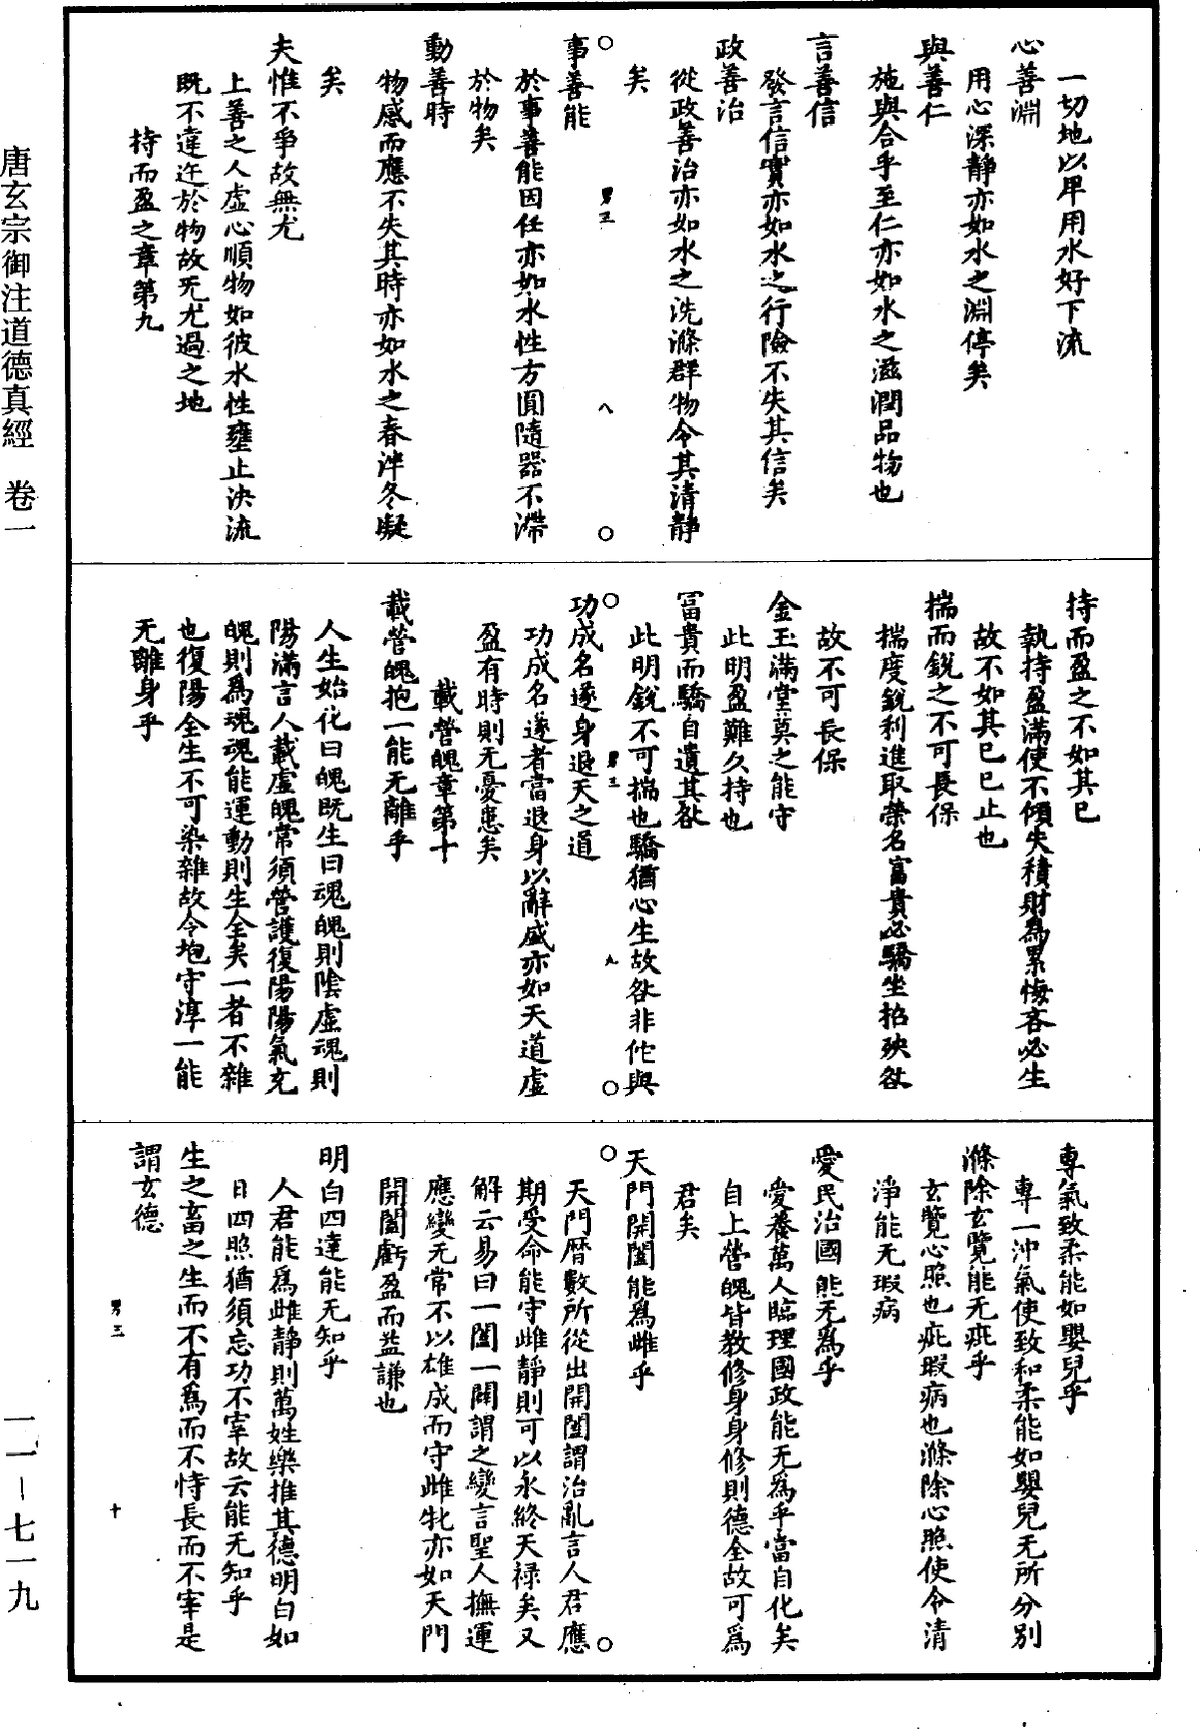 一切地以卑用水好下流
心善淵
用心深靜亦如水之淵停矣
與善仁
施與合乎至仁亦如水之滋潤品物也
言善信
發言信實亦如水之行險不失其信矣
政善治
從政善治亦如水之洗滌群物令其清靜
矣
事善能
於事善能因任亦如水性方圓隨器不滯
於物矣
動善時
物感而應不失其時亦如水之春泮冬凝
矣
夫惟不爭故無尤
上善之人虛心順物如彼水性壅止決流
既不違迕於物故无尤過之地
持而盈之章第九
持而盈之不如其已
執持盈滿使不傾失積財為累悔吝必生
故不如其已已止也
揣而銳之不可長保
揣度銳利進取榮名富貴必驕坐招殃咎
故不可長保
金玉滿堂莫之能守
此明盈難久持也
富貴而驕自遺其咎
此明銳不可揣也驕猶心生故咎非佗與
功成名遂身退天之道
功成名遂者當退身以辭盛亦如天道虛
盈有時則无憂患矣
載營魄章第十
載營魄抱一能无離乎
人生始化曰魄既生曰魂魄則陰虛魂則
陽滿言人載虛魄常須營護復陽陽氣充
魄則為魂魂能運動則生全矣一者不雜
也復陽全生不可染雜故令抱守淳一能
无離身乎
專氣致柔能如嬰兒乎
專一沖氣使致和柔能如嬰兒无所分別
滌除玄覽能无疵乎
玄覽心照也疵瑕病也滌除心照使令清
淨能无瑕病
愛民治國能无為乎
愛養萬人臨理國政能无為乎當自化矣
自上營魄皆教修身身修則德全故可為
君矣
天門開闔能為雌乎
天門曆數所從出開闔謂治亂言人君應
期受命能守雌靜則可以永終天祿矣又
解云易曰一闔一闢謂之變言聖人撫運
應變无常不以雄成而守雌牝亦如天門
開闔虧盈而益謙也
明白四達能无知乎
人君能為雌靜則萬姓樂推其德明白如
日四照猶須忘功不宰故云能无知乎
生之畜之生而不有為而不恃長而不宰是
謂玄德
唐玄宗御注道德真經　卷一
一一－七一九